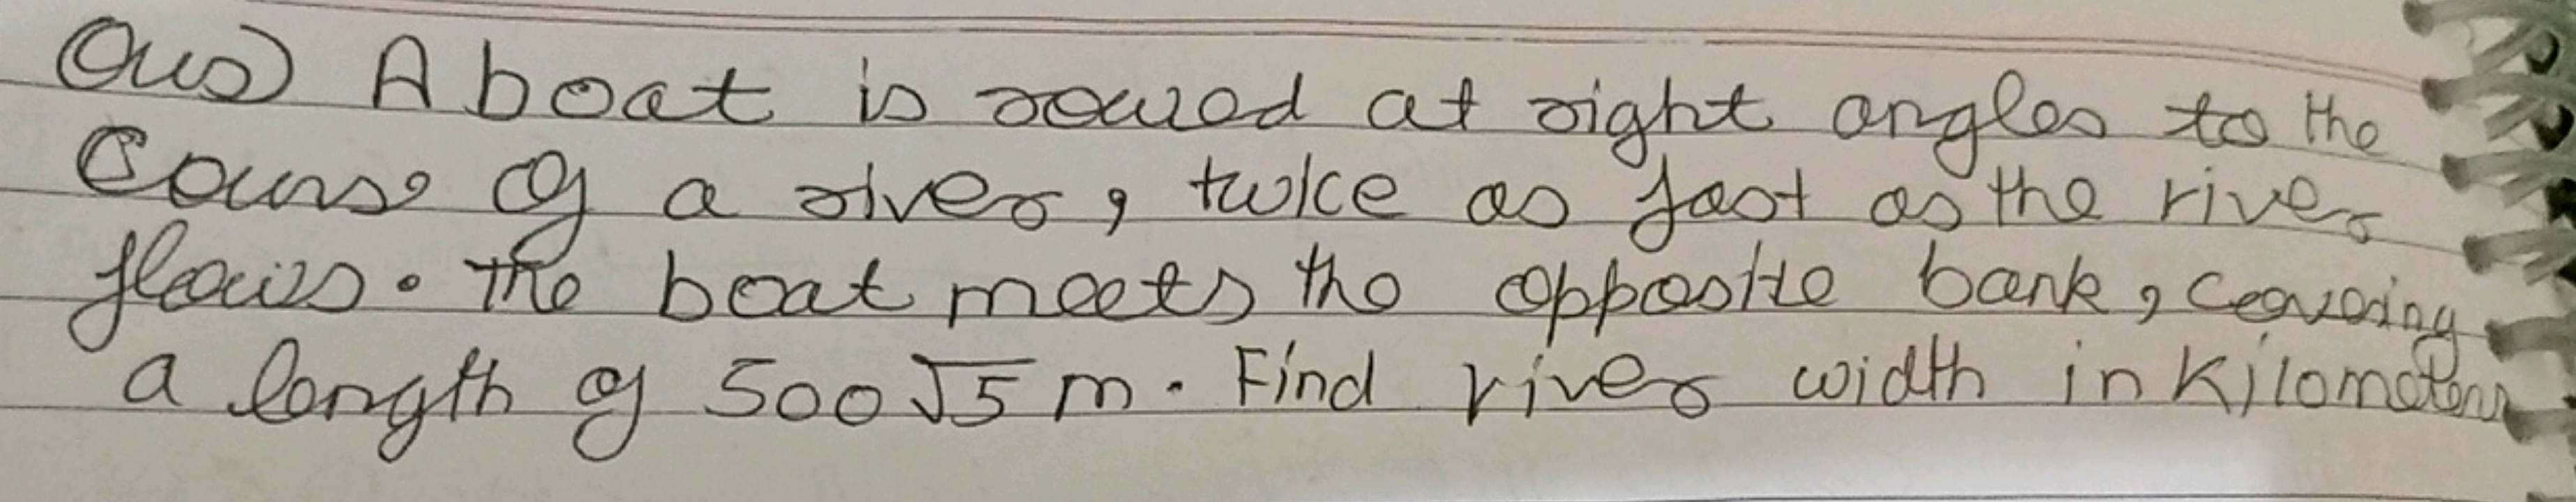 Ques) A boat is rowed at right angles to the
Course of a river, twice as fast as the river
flows. The boat meets the opposite bank, covering
a length of 500√5 m. Find river width in Kilometers